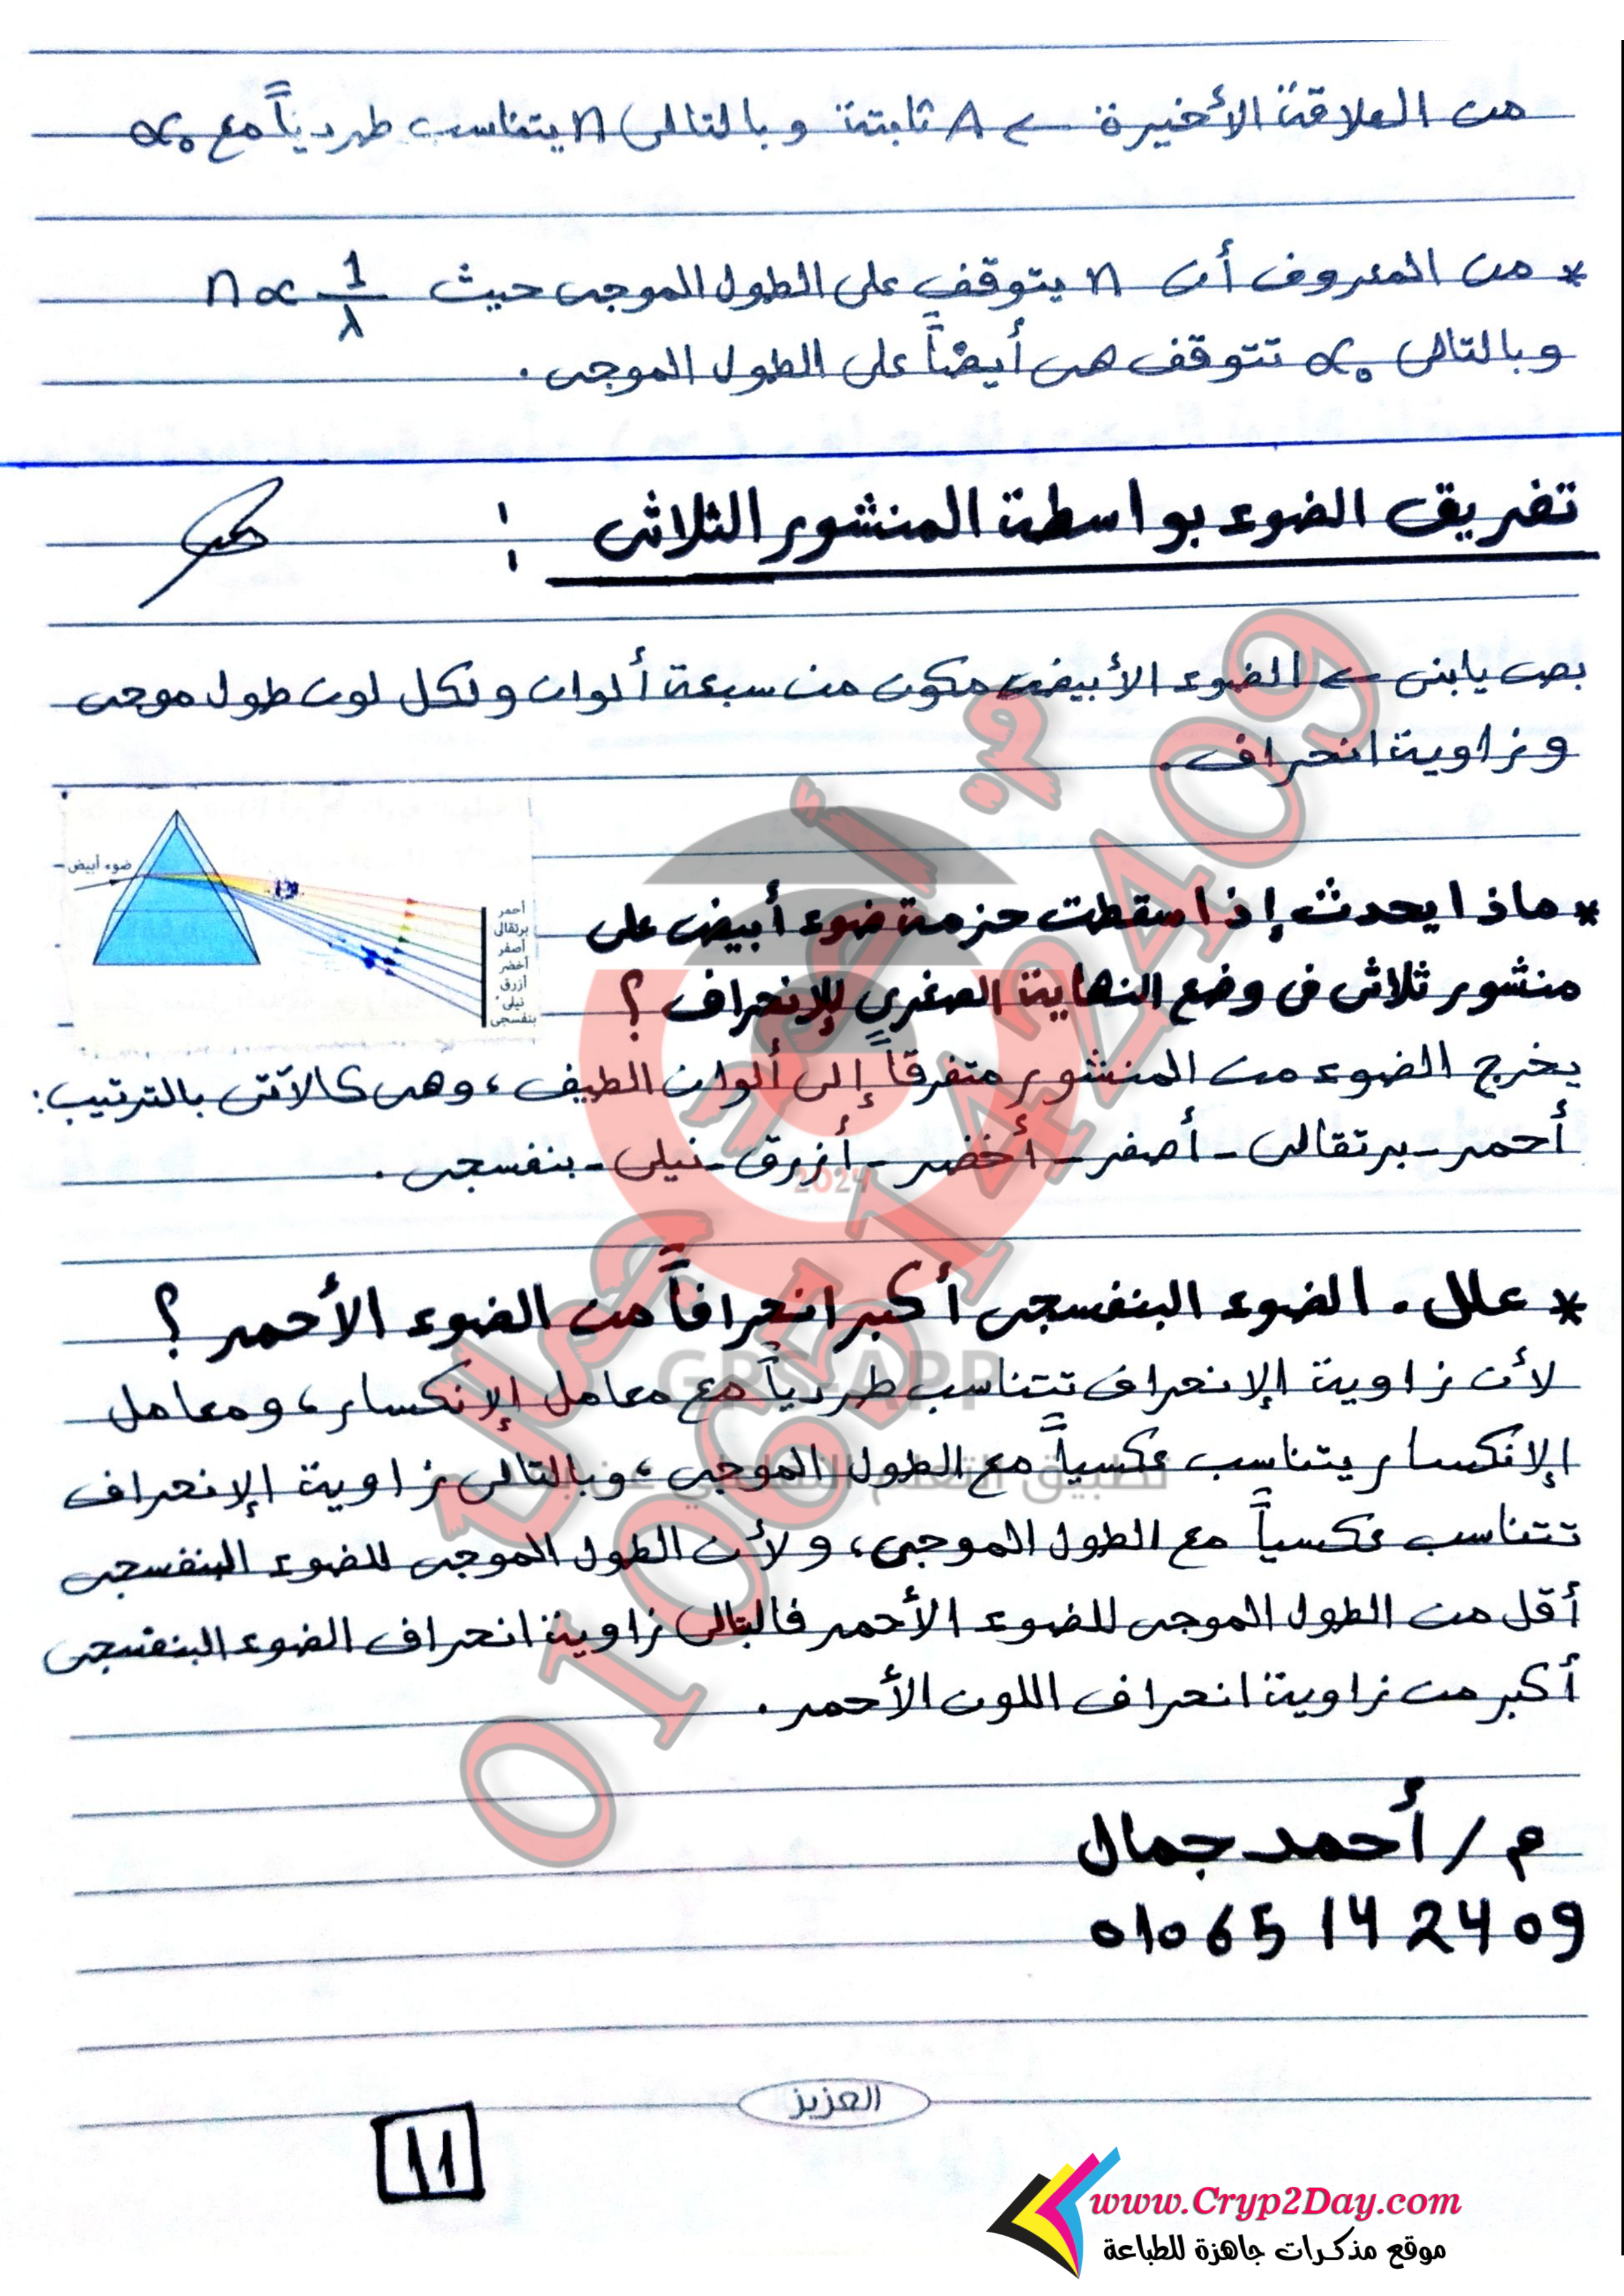 من العلاقة الأخيرة ← A ثابتة وبالتالى n يتناسب طردياً مع α₀
* من المعروف أن n يتوقف على الطول الموجى حيث n ∝ 1/λ
وبالتالى α₀ تتوقف هى أيضاً على الطول الموجى .
تفريق الضوء بواسطة المنشور الثلاثى :
بص يابنى ← الضوء الأبيض مكون من سبعة ألوان ولكل لون طول موجى
وزاوية انحراف .
ضوء أبيض
أحمر
برتقالى
أصفر
أخضر
أزرق
نيلى
بنفسجى
* ماذا يحدث إذا سقطت حزمة ضوء أبيض على
منشور ثلاثى فى وضع النهاية الصغرى للإنحراف ؟
يخرج الضوء من المنشور متفرقاً إلى ألوان الطيف ، وهى كالآتى بالترتيب :
أحمر - برتقالى - أصفر - أخضر - أزرق - نيلى - بنفسجى .
* علل . الضوء البنفسجى أكبر انحرافاً من الضوء الأحمر ؟
لأن زاوية الإنحراف تتناسب طردياً مع معامل الإنكسار ، ومعامل
الإنكسار يتناسب عكسياً مع الطول الموجى ، وبالتالى زاوية الإنحراف
تتناسب عكسياً مع الطول الموجى ، ولأن الطول الموجى للضوء البنفسجى
أقل من الطول الموجى للضوء الأحمر فالبتالى زاوية انحراف الضوء البنفسجى
أكبر من زاوية انحراف اللون الأحمر .
م / أحمد جمال
01065142409
العزيز
11
www.Cryp2Day.com
موقع مذكرات جاهزة للطباعة
م. أحمد جمال
01065142409
2024
GPS-APP
تطبيق التعلم التفاعلي عن بعد